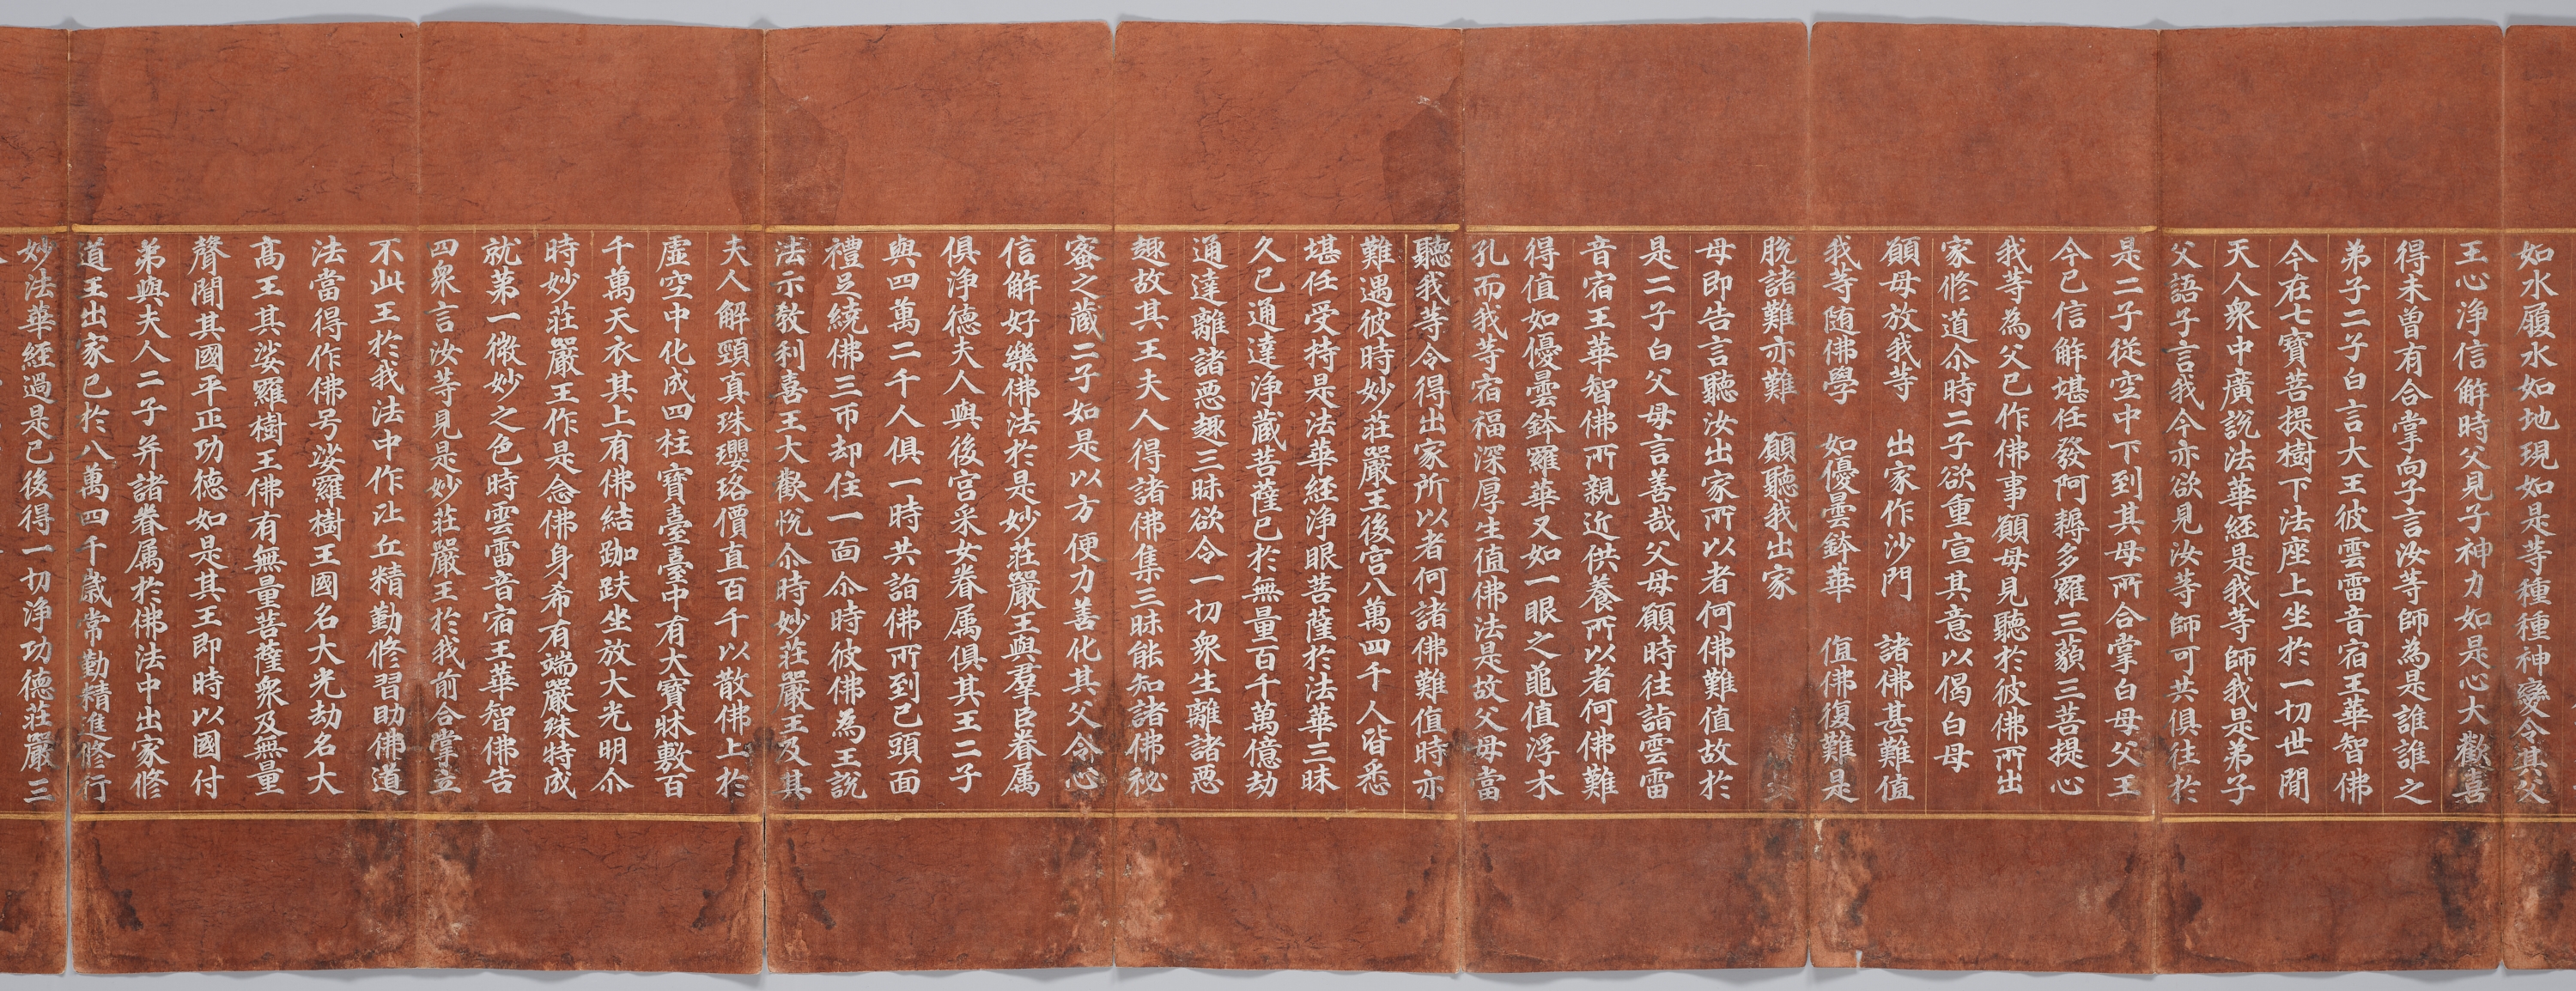 如水履水如地現如是等種種神變令其父
王心淨信解時父見子神力如是心大歡喜
得未曾有合掌向子言汝等師為是誰誰之
弟子二子白言大王彼雲雷音宿王華智佛
今在七寶菩提樹下法座上坐於一切世間
天人衆中廣說法華経是我等師我是弟子
父語子言我今亦欲見汝等師可共俱往於
是二子從空中下到其母所合掌白母父王
今已信解堪任發阿耨多羅三藐三菩提心
我等為父已作佛事願母見聽於彼佛所出
家修道尒時二子欲重宣其意以偈白母
願母放我等　出家作沙門　諸佛甚難值
我等随佛學　如優曇鉢華　值佛復難是
脫諸難亦難　願聽我出家
母即告言聽汝出家所以者何佛難值故於
是二子白父母言善哉父母願時往詣雲雷
音宿王華智佛所親近供養所以者何佛難
得值如優曇鉢羅華又如一眼之龜值浮木
孔而我等宿福深厚生值佛法是故父母當
聽我等令得出家所以者何諸佛難值時亦
難遇彼時妙莊嚴王後宮八萬四千人皆悉
堪任受持是法華経淨眼菩薩於法華三昧
久已通達淨藏菩薩已於無量百千萬億劫
通達離諸惡趣三昧欲令一切衆生離諸惡
趣故其王夫人得諸佛集三昧能知諸佛祕
密之藏二子如是以方便力善化其父令心
信解好樂佛法於是妙莊嚴王與羣臣眷属
俱淨德夫人與後宮采女眷属俱其王二子
與四萬二千人俱一時共詣佛所到已頭面
禮足繞佛三帀却住一面尒時彼佛為王說
法示教利喜王大歡悅尒時妙莊嚴王及其
夫人解頸真珠瓔珞價直百千以散佛上於
虛空中化成四柱寶臺臺中有大寶牀敷百
千萬天衣其上有佛結跏趺坐放大光明尒
時妙莊嚴王作是念佛身希有端嚴殊特成
就第一微妙之色時雲雷音宿王華智佛告
四衆言汝等見是妙莊嚴王於我前合掌立
不此王於我法中作比丘精勤修習助佛道
法當得作佛号娑羅樹王國名大光劫名大
高王其娑羅樹王佛有無量菩薩衆及無量
聲聞其國平正功德如是其王即時以國付
弟與夫人二子并諸眷属於佛法中出家修
道王出家已於八萬四千歲常勤精進修行
妙法華経過是已後得一切淨功德莊嚴三